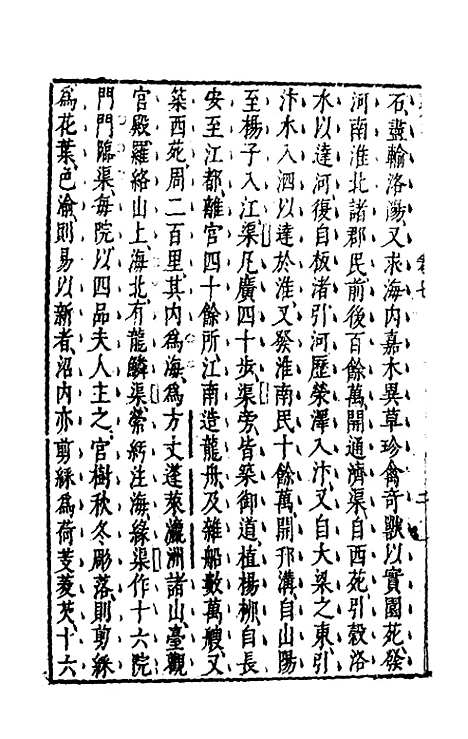 石盡輸洛陽又求海内嘉木異草珍禽奇獸以實園苑發
河南淮北諸郡民前後百餘萬開通濟渠自西苑引穀洛
水以達河復自板渚引河歷滎澤入汴又自大梁之東引
汴水入泗以達於淮又發淮南民十餘萬開邗溝自山陽
至楊子入江渠凡廣四十步渠旁皆築御道植楊柳自長
安至江都離宮四十餘所江南造龍舟及雜船數萬艘又
築西苑周二百里其内爲海爲方丈蓬萊瀛洲諸山臺觀
宮殿羅絡山上海北有龍鱗渠縈紆注海緣渠作十六院
門門臨渠每院以四品夫人主之宮樹秋冬彫落則剪綵
爲花葉色渝則易以新者沼内亦剪綵爲荷芰菱芡十六